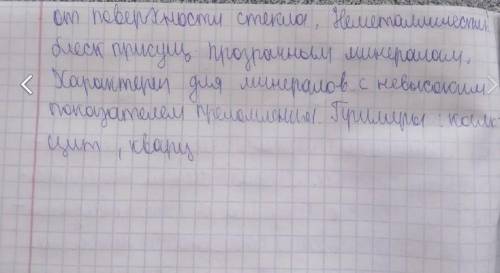 от поверхности стекла. Неметаллический
блеск присущ прозрачным минералам.
Характерен для минералов с невысоким
показателем преломления. Примеры: каль-
цит, кварц